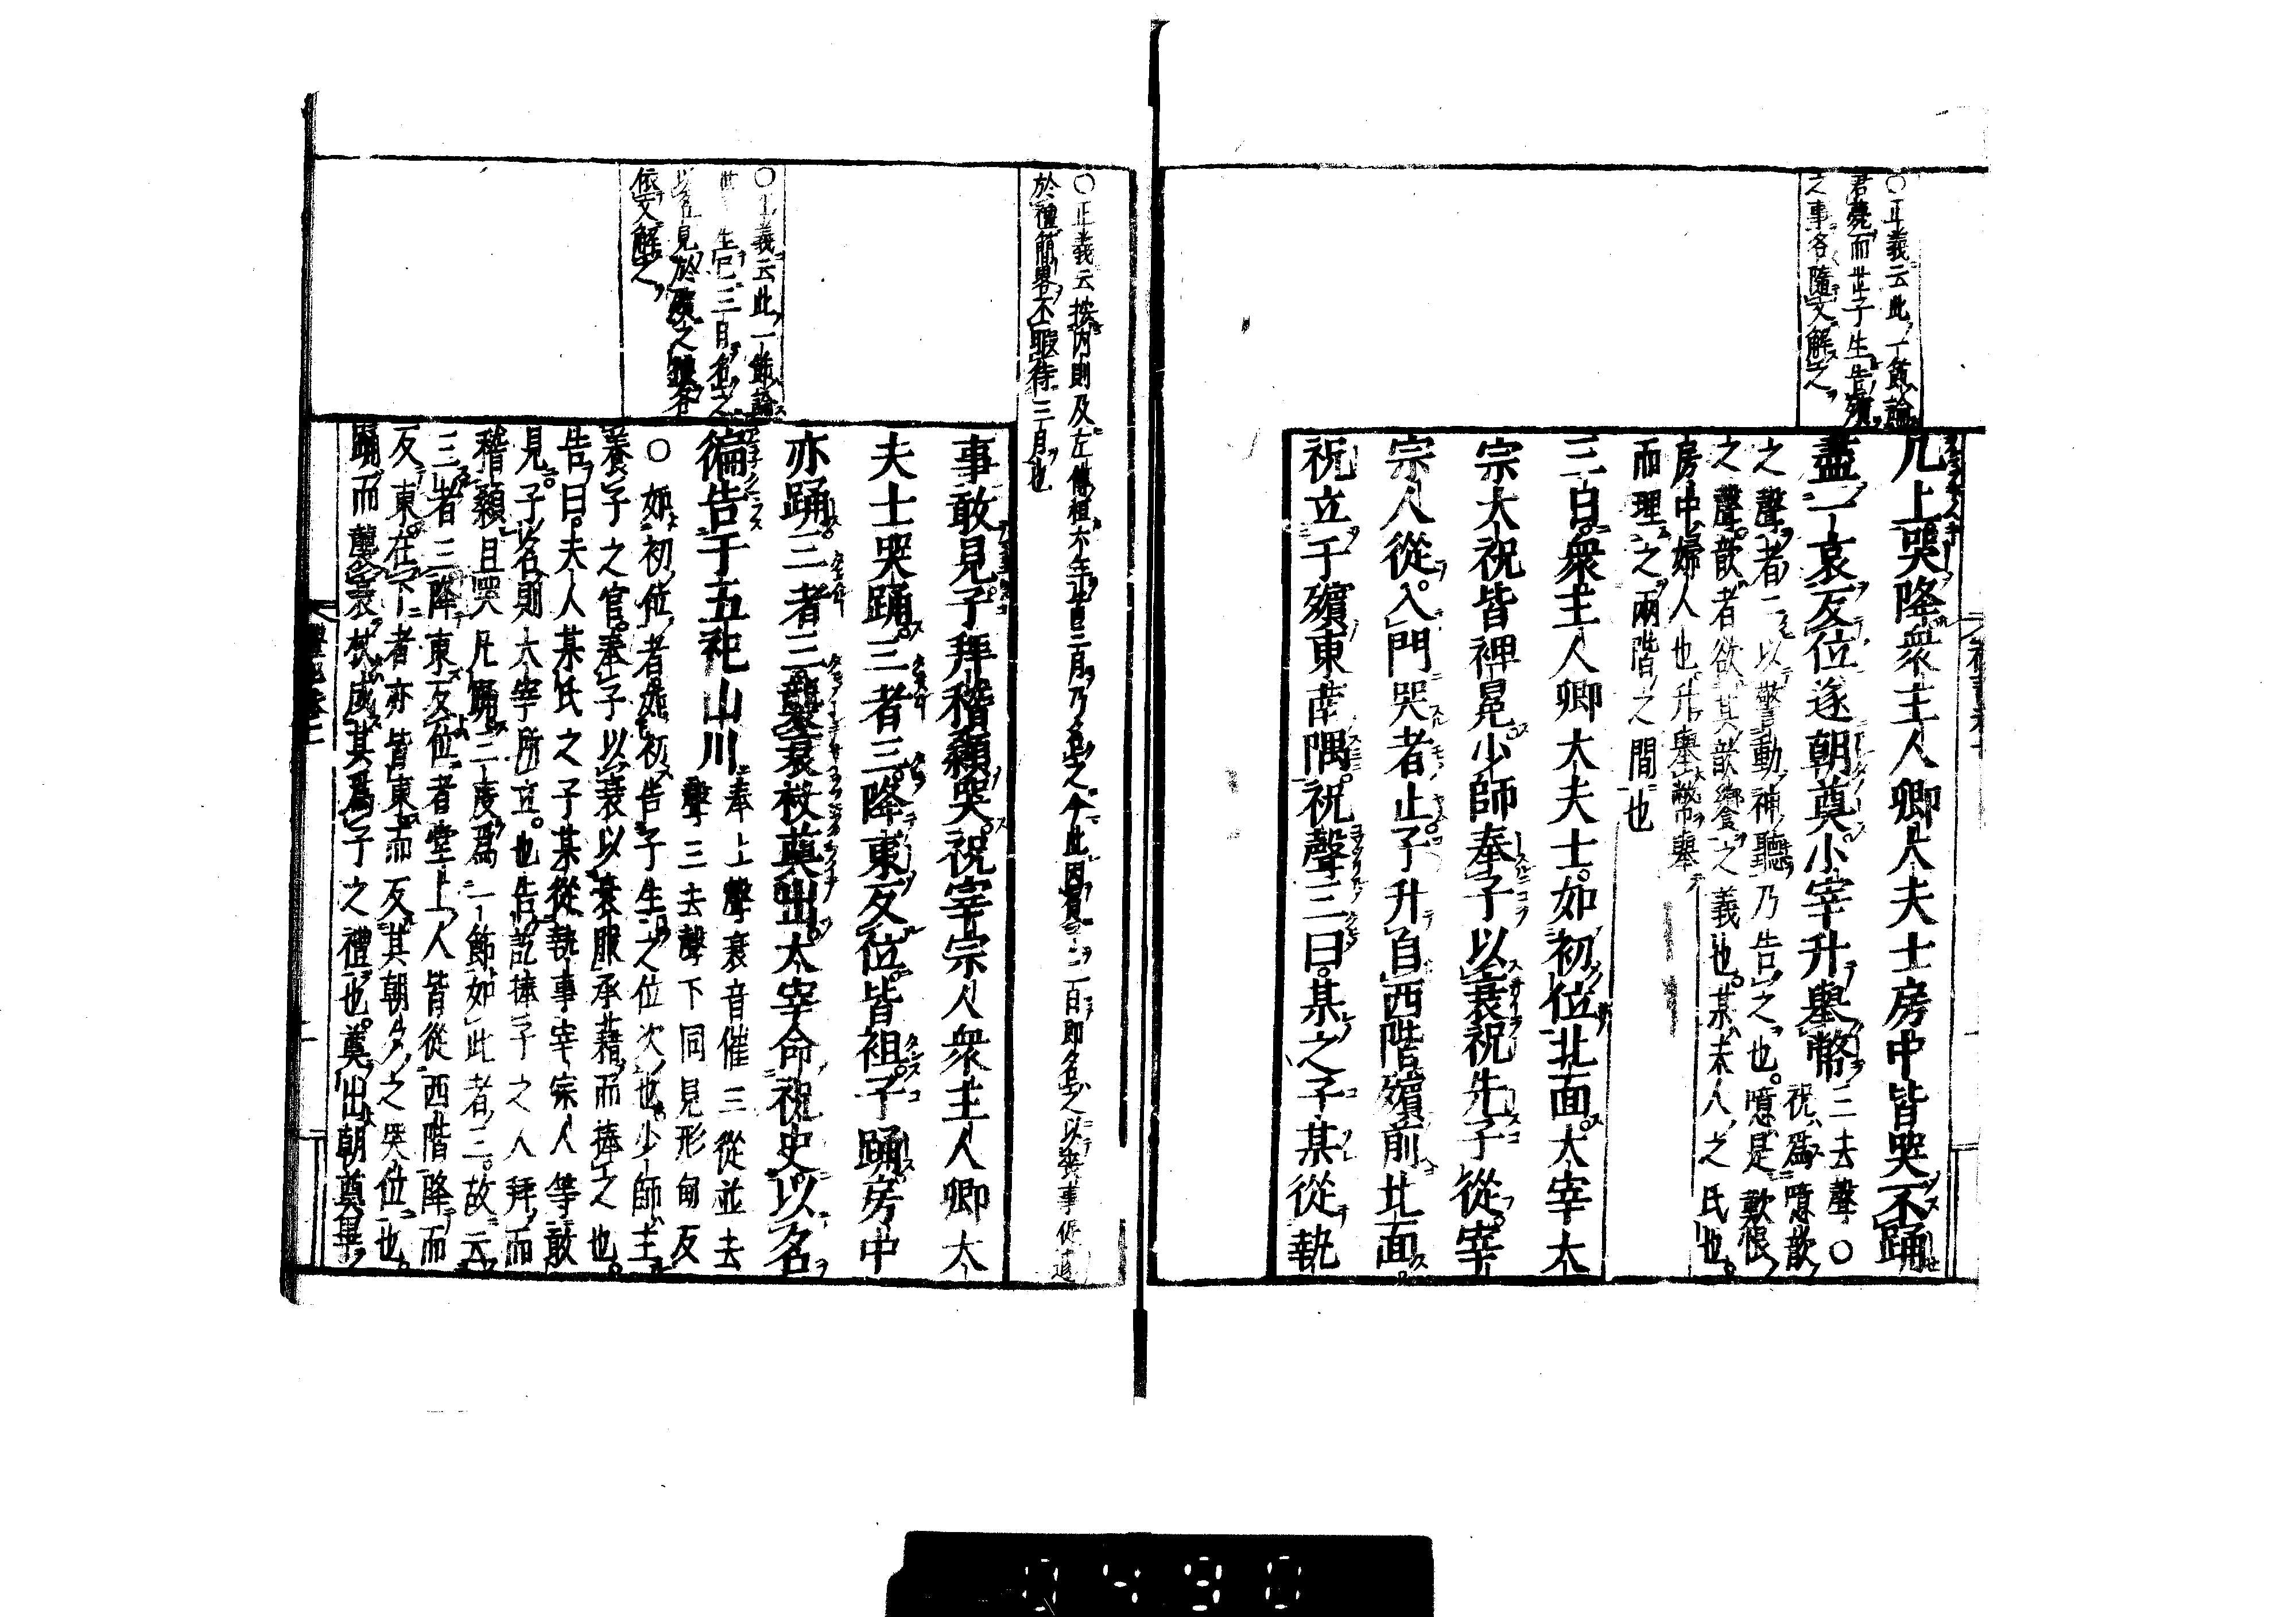 ○正義云此一節論
君薨而世子生告殯
之事各隨文解之
几上哭降衆主人卿大夫士房中皆哭不踊
盡一哀反位遂朝奠小宰升舉幣
三去聲○
祝爲噫歆
之聲者三以警動神聽乃告之也噫是歎恨
之聲歆者欲其歆饗之義也某夫人之氏也
房中婦人也升舉幣舉
而理之兩階之間也
三日衆主人卿大夫士如初位北面大宰大
宗大祝皆裨冕少師奉子以衰祝先子從宰
宗人從入門哭者止子升自西階殯前北面
祝立于殯東南隅祝聲三曰某之子某從執
○正義云按内則及左傳桓六年皆三月乃名之今此因負子三日即名之以喪事促遽
於禮簡畧不暇待三月也
事敢見子拜稽顙哭祝宰宗人衆主人卿大
夫士哭踊三者三降東反位皆袒子踊房中
亦踊三者三襲衰杖奠出大宰命祝史以名
○正義云此一節論
世子生已三月名之
以名見於殯之禮各
依文解之
徧告于五祀山川
奉上聲衰音催三從並去
聲三去聲下同見形甸反
○如初位者如初告子生之位次也少師主
養子之官奉子以衰以衰服承藉而捧之也
告曰夫人某氏之子某從執事宰宗人等敢
見子以名則大宰所立也告訖捧子之人拜而
稽顙且哭凡踊三度爲一節如此者三故云
三者三降東反位者堂上人皆從西階降而
反東在下者亦皆東而反其朝夕之哭位也
踊而襲衰杖成其爲子之禮也奠出朝奠畢
禮記卷七
0490